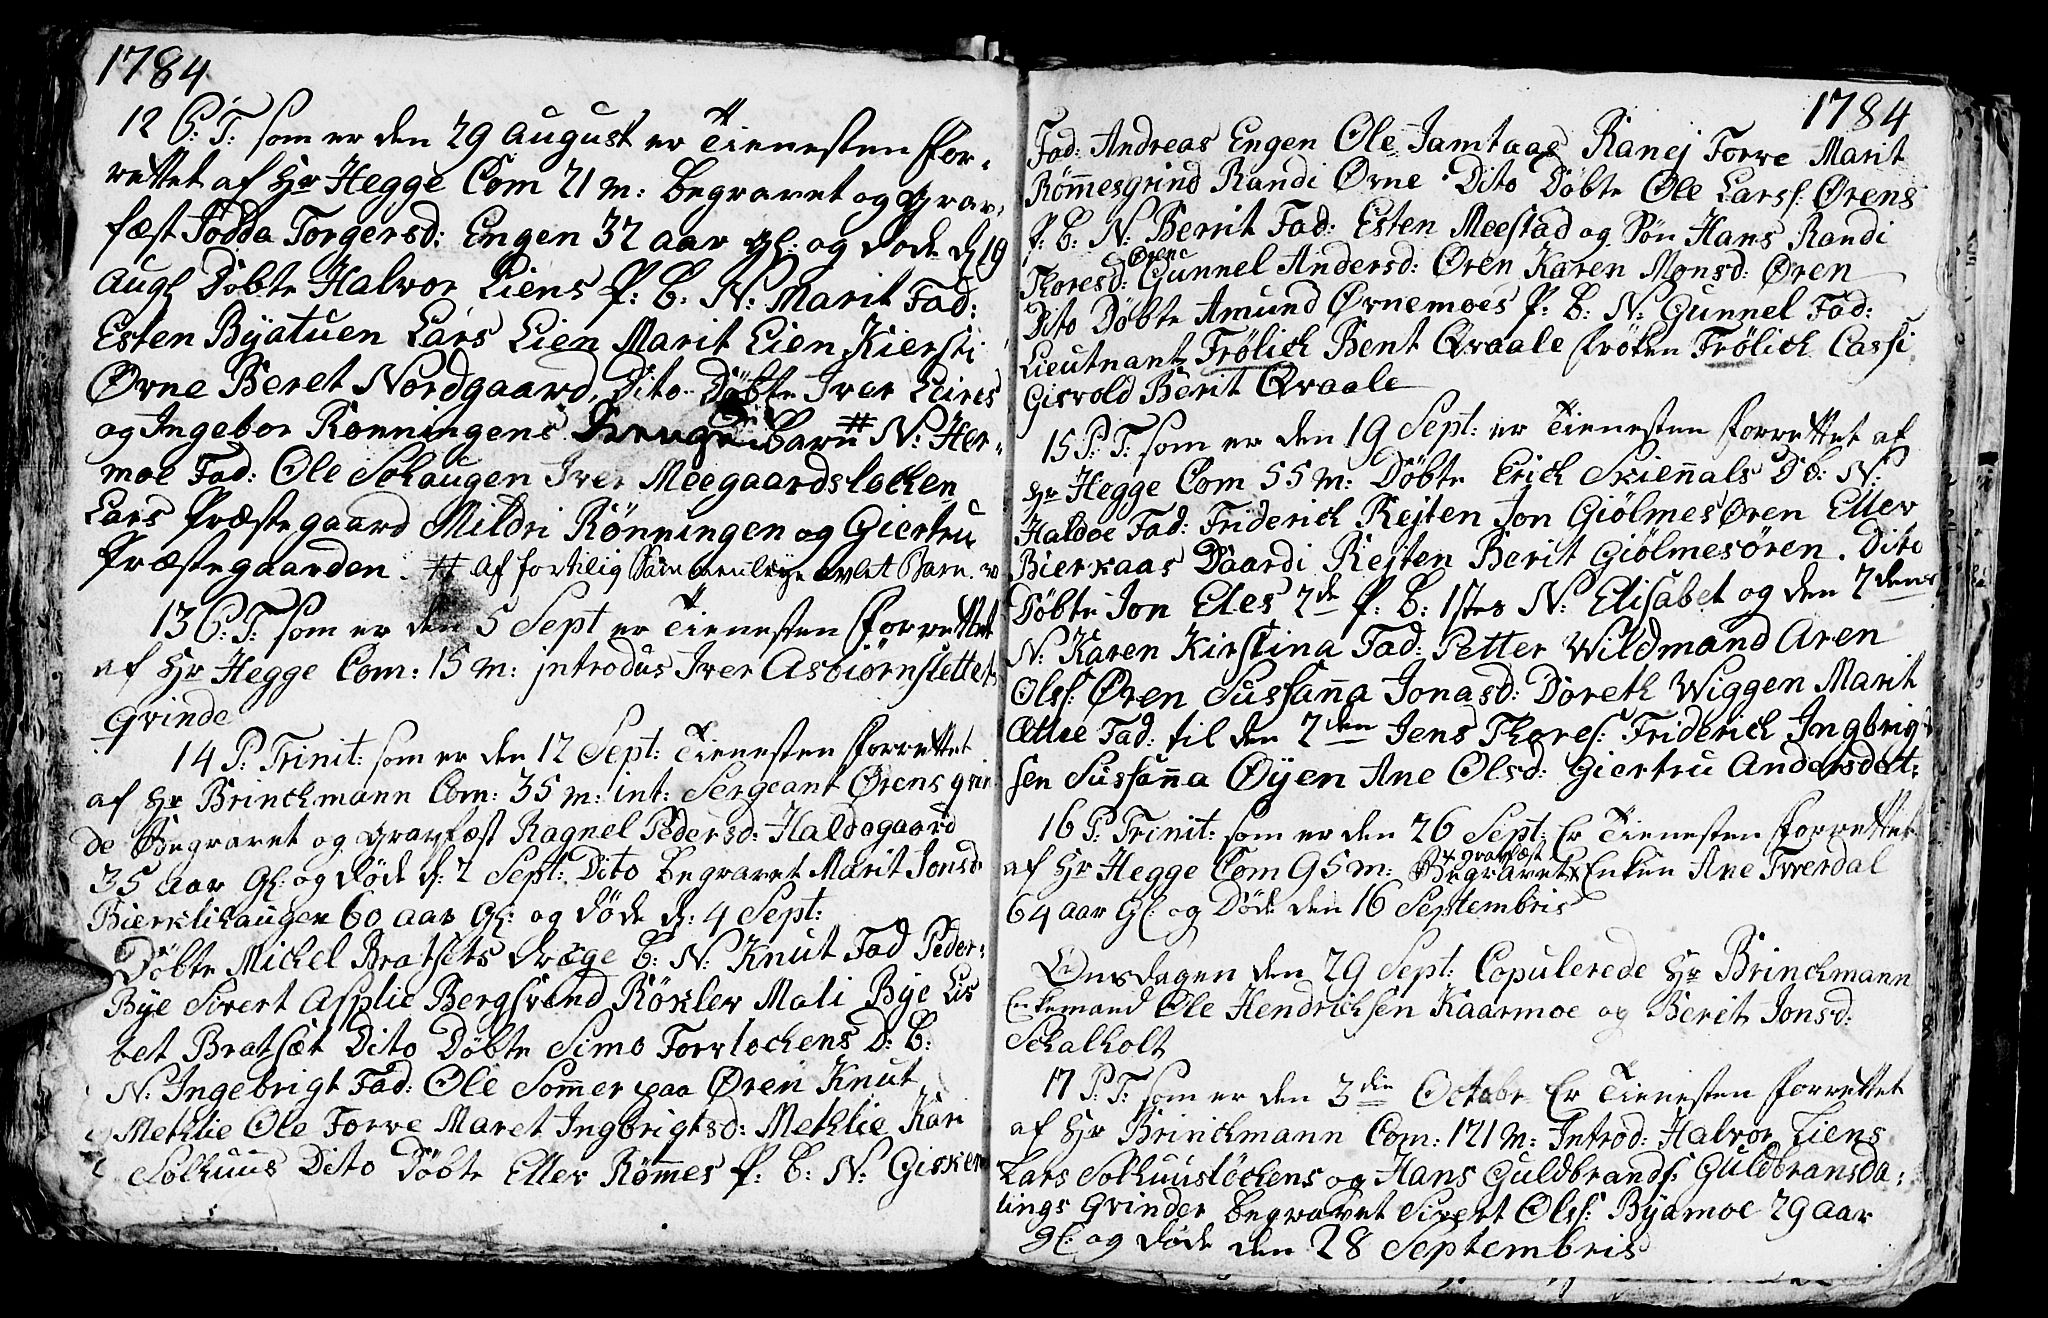 1784
12 S: T: som er den 29 August er Tienesten for-
rettet af Hr Hegge Com 21 m: begravet og grav-
fæst Todda Torgersd: Engen 32 aar gl: og døde d 19
Aug Døbte Halvor Liens P: B: N: Marit Fad:
Esten Byatuen Lars Lien Marit Lien Kiersti
Ørne Beret Nordgaard, Dito Døbte Iver Leires
og Ingebor Rønningens Barn # N: Her-
moe Fad: Ole Solhaugen Iver Meegaardsløcken
Lars Præstegaard Mildri Rönningen og Giertru
Præstegaarden. # Af fortilig Sammenleye avlet Barn.
13 S: T: som er den 5 Sept er Tienesten forrettet
af Hr Hegge Com: 15 m: introdus Iver Asbiørnslettets
Qvinde
14 P: Trinit: som er den 12 Sept: Tienesten forrettet
af Hr Brinckmann Com: 35 m: int: Sergeant Ørens qvin
de Begravet og gravfæst Ragnel Pedersd: Haldogaard
35 aar Gl: og døde d: 2 Sept: Dito begravet Marit Jonsd
Bierklihaugen 60 aar Gl: og døde d: 4 Sept:
Døbte Michel Bratsets dræge B: N: Knut Fad Peder:
Bye Sivert Asplie Bergsvend Röxler Mali Bye Lis
bet Bratsæt Dito Døbte Simo Forrløckens D: B:
N: Ingebrigt Fad: Ole Sommer paa Øren Knut
Methlie Ole Torve Maret Ingbrigtsd: Methlie Kari
Solhuus Dito Døbte Eller Römmes P: B: N: Gisken
1784
Fad: Andreas Engen Ole Jamtaas Ranej Torve Marit
Römmesgrind Randi Ørne Dito Döbte Ole Larss: Ørens
P: B: N: Berrit Fad: Esten Meestad og Sön Hans Randi
Thoresd: Ørne Gunnel Andersd: Ören Karen Monsd: Ören
Dito Döbte Amund Ørnemoes P: B: N: Gunnel Fad:
Lieutnant Frölich Bent Qvaale frøken Frölich Cassi
Gisvold Berit Qvaale
15 P: T: som er den 19 Sept: er Tienesten forrettet af
Hr Hegge Com 55 m: Døbte Erich Skiennals D: N:
Haldoe Fad: Friderich Rejten Jon Giölmesøren Eller
Bierkaas Daardi Rejten Berit Giölmesören. Dito
Döbte Jon Eles 2de P: B: 1stes N: Elisabet og den 2dens
N: Karen Kirstina Fad: Petter Wildmand Aren
Olss: Øren Sussanna Jonasd: Doreth Wiggen Marit
Fad: til den 2den Jens Thores: Friderich Ingbrigt
sen Sussanna Øyen Ane Olsd: Giertru Andersdatt:
16 P: Trinit: som er den 26 Sept: Er Tienesten forrettet
af Hr Hegge Com 95 m: Begravet & gravfæst Enken Ane Tverdal
64 aar Gl: og Døde den 16 Septembris
Onsdagen den 29 Sept: Copulerede Hr Brinckmann
Enkemand Ole Hendrichsen Kaarmoe og Berit Jonsd:
Schalholt
17 P: T: som er den 3die Octobr Er Tienesten forrettet
af Hr Brinckmann Com: 121 m: Introd: Halvor Liens
Lars Solhuusløckens og Hans Guldbrands: Guldbransda:
lings Qvinder begravet Sivert Olss: Byamoe 29 aar
gl: og døde den 28 Septembris